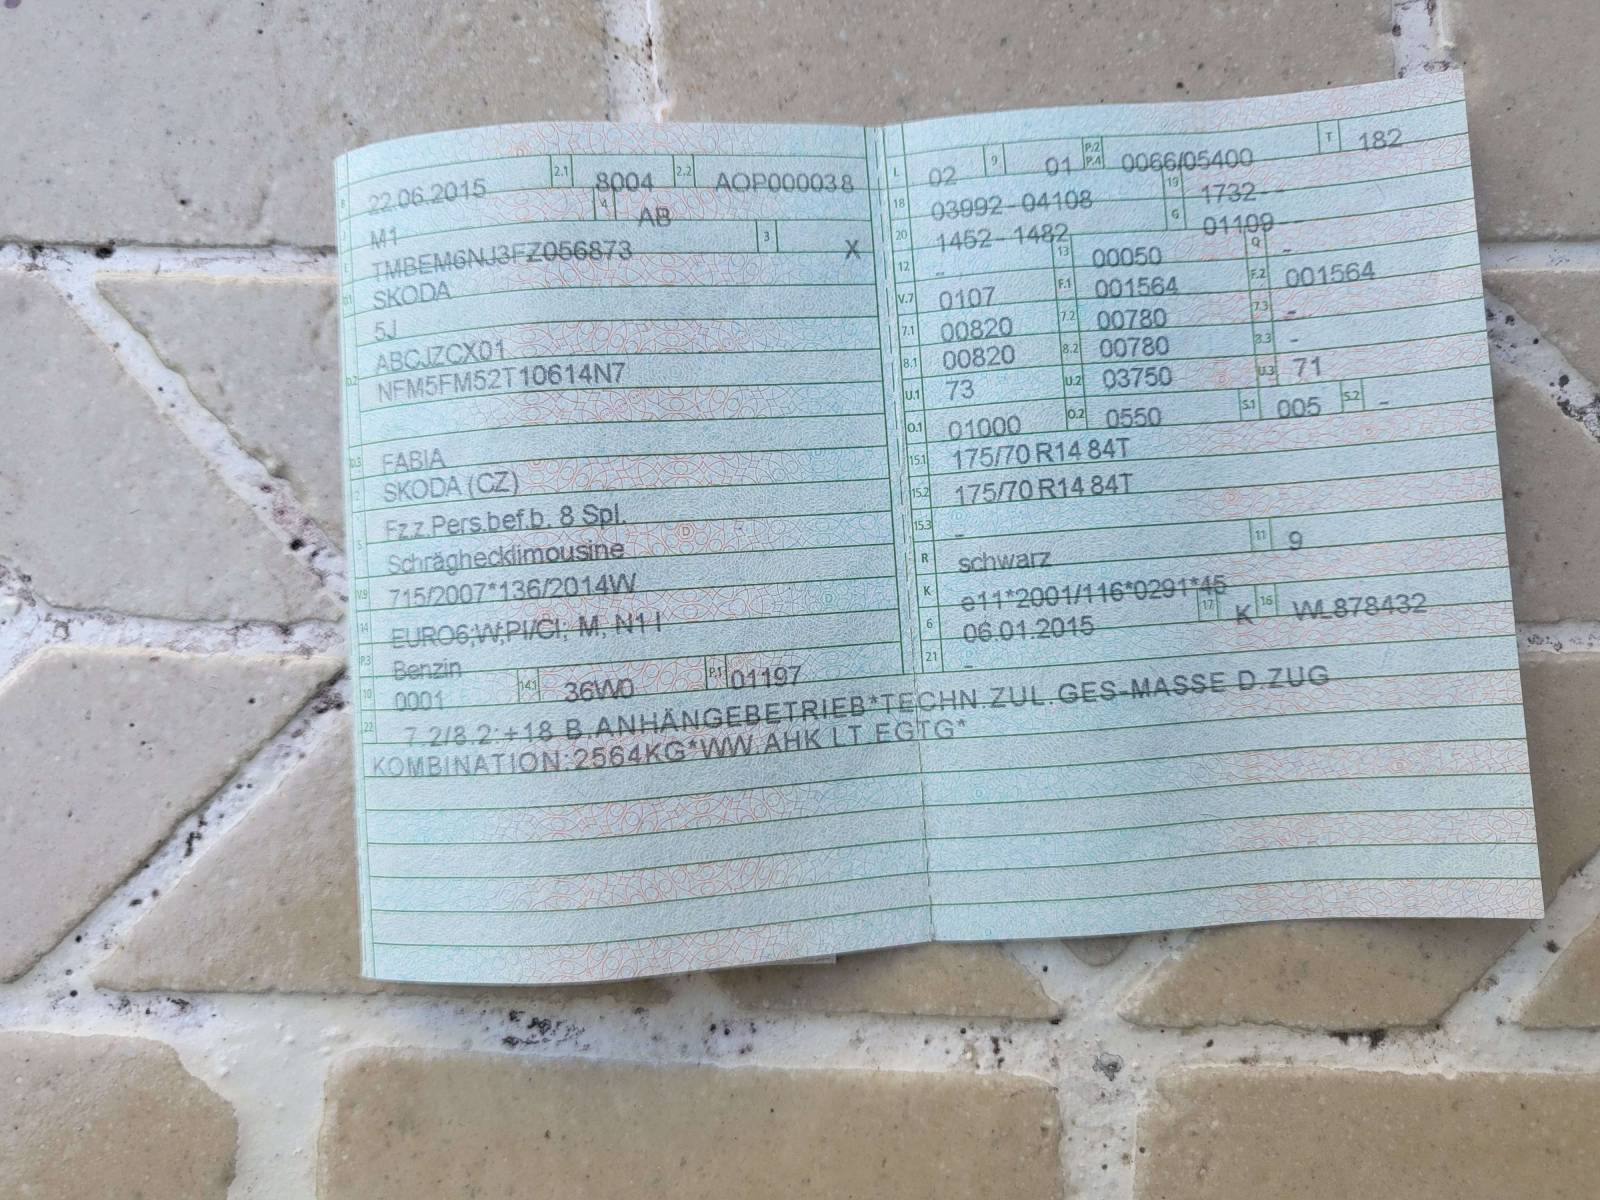 B 22.06.2015 2.1 8004 2.2 AOP000038
J M1 4 AB
E TMBEM6NJ3FZ056873 3 X
D.1 SKODA
5J
ABCJZCX01
D.2 NFM5FM52T10614N7
D.3 FABIA
2 SKODA (CZ)
Fz.z.Pers.bef.b. 8 Spl.
5 Schräghecklimousine
V.9 715/2007*136/2014W
14 EURO6;W;PI/CI; M, N1 I
P.3 Benzin
10 0001 14.1 36W0 P.1 01197
22 7.2/8.2:+18 B.ANHÄNGEBETRIEB*TECHN.ZUL.GES-MASSE D.ZUG
KOMBINATION:2564KG*WW.AHK LT.EGTG*
L 02 9 01 P.2 P.4 0066/05400 T 182
18 03992-04108 19 1732--
20 1452-1482 G 01109--
12 - 13 00050 Q -
V.7 0107 F.1 001564 F.2 001564
7.1 00820 7.2 00780 7.3 -
8.1 00820 8.2 00780 8.3 -
U.1 73 U.2 03750 U.3 71
O.1 01000 O.2 0550 S.1 005 S.2 -
15.1 175/70 R14 84T
15.2 175/70 R14 84T
15.3 -
R schwarz 11 9
K e11*2001/116*0291*45
6 06.01.2015 17 K 16 WL878432
21 -